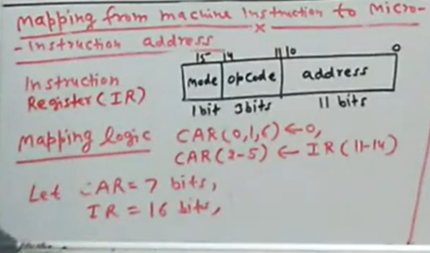 Mapping from machine Instruction to Micro-
-Instruction address
15 14 11 10 0
Instruction
Register(IR)
mode opcode address
1bit 3bits 11 bits
Mapping logic CAR(0,1,6) ← 0,
CAR(2-5) ← IR(11-14)
Let CAR = 7 bits,
IR = 16 bits,